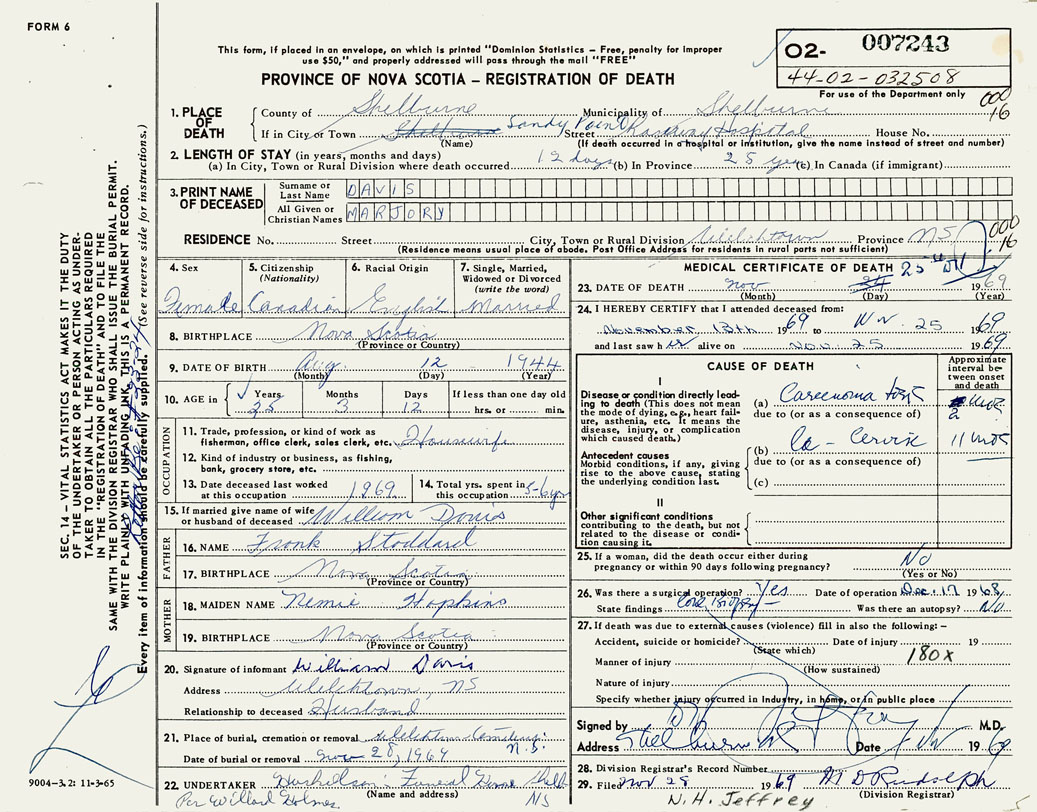 FORM 6
This form, if placed in an envelope, on which is printed "Dominion Statistics – Free, penalty for improper
use $50," and properly addressed will pass through the mail "FREE"
PROVINCE OF NOVA SCOTIA – REGISTRATION OF DEATH
02- 007243
44-02-032508
For use of the Department only
000
16
1. PLACE OF DEATH
County of Shelburne Municipality of Shelburne
If in City or Town Shelburne Sandy Point Street Hospital House No.
(Name) (If death occurred in a hospital or institution, give the name instead of street and number)
2. LENGTH OF STAY (in years, months and days)
(a) In City, Town or Rural Division where death occurred 12 days (b) In Province 25 yrs (c) In Canada (if immigrant)
3. PRINT NAME OF DECEASED
Surname or Last Name DAVIS
All Given or Christian Names MARJORY
RESIDENCE No. Street City, Town or Rural Division Welchtown Province NS
(Residence means usual place of abode. Post Office Address for residents in rural parts not sufficient)
000
16
4. Sex
Female
5. Citizenship
(Nationality)
Canadian
6. Racial Origin
English
7. Single, Married,
Widowed or Divorced
(write the word)
Married
8. BIRTHPLACE Nova Scotia
(Province or Country)
9. DATE OF BIRTH Aug. 12 1944
(Month) (Day) (Year)
10. AGE in Years Months Days If less than one day old
25 3 12 hrs. or min.
OCCUPATION
11. Trade, profession, or kind of work as
fisherman, office clerk, sales clerk, etc. Housewife
12. Kind of industry or business, as fishing,
bank, grocery store, etc.
13. Date deceased last worked
at this occupation 1969
14. Total yrs. spent in
this occupation 5-6 yrs
15. If married give name of wife
or husband of deceased William Davis
FATHER
16. NAME Frank Stoddard
17. BIRTHPLACE Nova Scotia
(Province or Country)
MOTHER
18. MAIDEN NAME Nemie Hopkins
19. BIRTHPLACE Nova Scotia
(Province or Country)
20. Signature of informant William Davis
Address Welchtown, NS
Relationship to deceased Husband
21. Place of burial, cremation or removal Welchtown Cemetery N.S.
Date of burial or removal Nov 28, 1969
22. UNDERTAKER Funeral Home Shelb
(Name and address) NS
Per Willard Holmes
MEDICAL CERTIFICATE OF DEATH 25th
23. DATE OF DEATH Nov 24 1969
(Month) (Day) (Year)
24. I HEREBY CERTIFY that I attended deceased from:
November 13th 1969 to Nov 25 1969
and last saw her alive on Nov. 25 1969
CAUSE OF DEATH
Approximate interval between onset and death
I
Disease or condition directly lead-
ing to death (This does not mean
the mode of dying, e.g., heart fail-
ure, asthenia, etc. It means the
disease, injury, or complication
which caused death.)
(a) Carcinoma tosis 2 mos
due to (or as a consequence of)
Antecedent causes
Morbid conditions, if any, giving
rise to the above cause, stating
the underlying condition last.
(b) Ca - Cervix 11 mos
due to (or as a consequence of)
(c)
II
Other significant conditions
contributing to the death, but not
related to the disease or condi-
tion causing it.
25. If a woman, did the death occur either during
pregnancy or within 90 days following pregnancy? No
(Yes or No)
26. Was there a surgical operation? Yes Date of operation Dec. 17 1968
State findings Cone Biopsy Was there an autopsy? No
27. If death was due to external causes (violence) fill in also the following: –
Accident, suicide or homicide? Date of injury 19
(State which)
Manner of injury 180x
(How sustained)
Nature of injury
Specify whether injury occurred in Industry, in home, or in public place
Signed by M.D.
Address Shelburne NS Date 1969
28. Division Registrar's Record Number
29. Filed Nov 28 1969 M D Rudolph
(Division Registrar)
N. H. Jeffrey
SEC. 14 – VITAL STATISTICS ACT MAKES IT THE DUTY
OF THE UNDERTAKER OR PERSON ACTING AS UNDER-
TAKER TO OBTAIN ALL THE PARTICULARS REQUIRED
IN THE "REGISTRATION OF DEATH" AND TO FILE THE
SAME WITH THE DIVISION REGISTRAR WHO SHALL ISSUE THE BURIAL PERMIT.
WRITE PLAINLY WITH UNFADING INK. THIS IS A PERMANENT RECORD.
Every item of information should be carefully supplied. (See reverse side for instructions.)
9004-3.2: 11-3-65